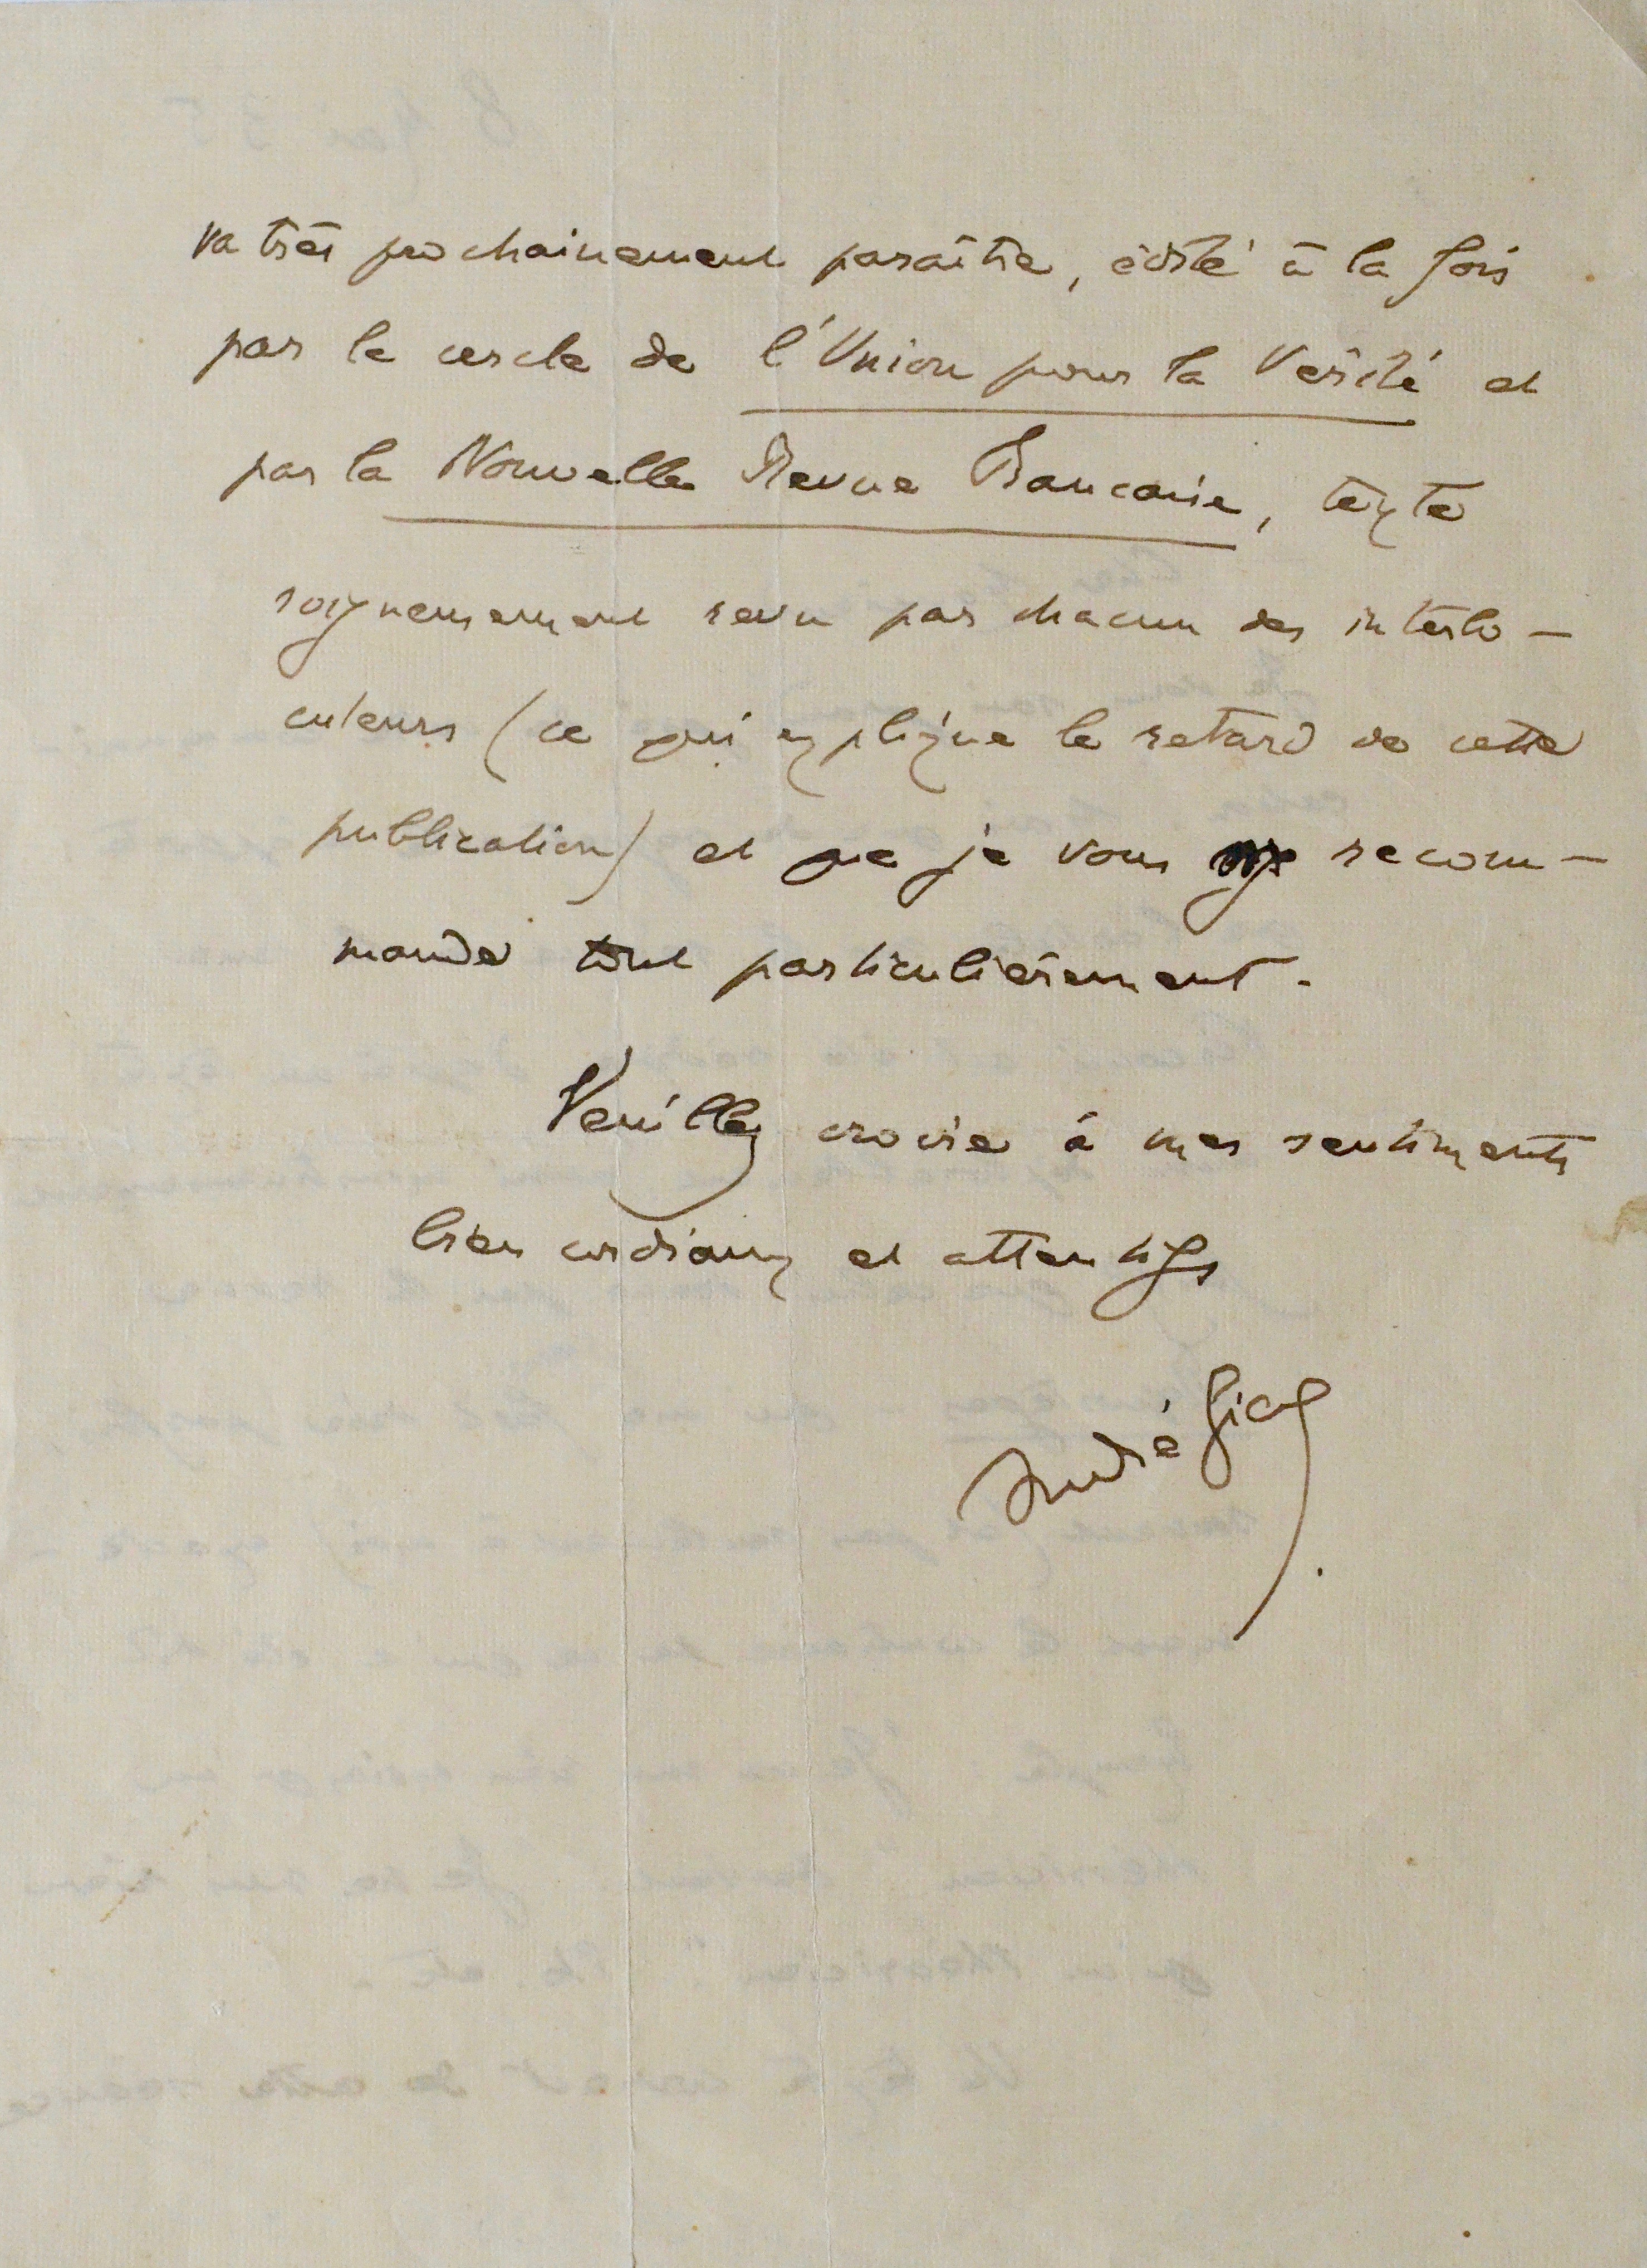 va très prochainement paraître, édité à la fois
par le cercle de l'Union pour la Vérité et
par la Nouvelle Revue Francaise, texte
soigneusement revu par chacun des interlo-
cuteurs (ce qui explique le retard de cette
publication) et que je vous recom-
mande tout particulièrement.
Veuillez croire à mes sentiments
bien cordiaux et attentifs
André Gide.